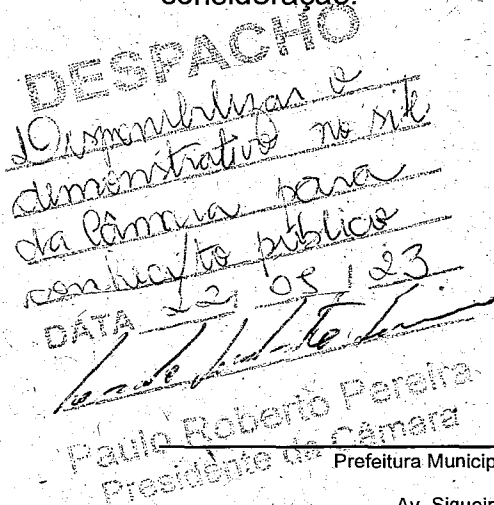 consideração.
DESPACHO
Disponibilizar o
demonstrativo no site
da Câmara para
conheci/to público
DATA 22/05/23
Paulo Roberto Pereira
Presidente da Câmara
Prefeitura Municip
Av. Siqueir